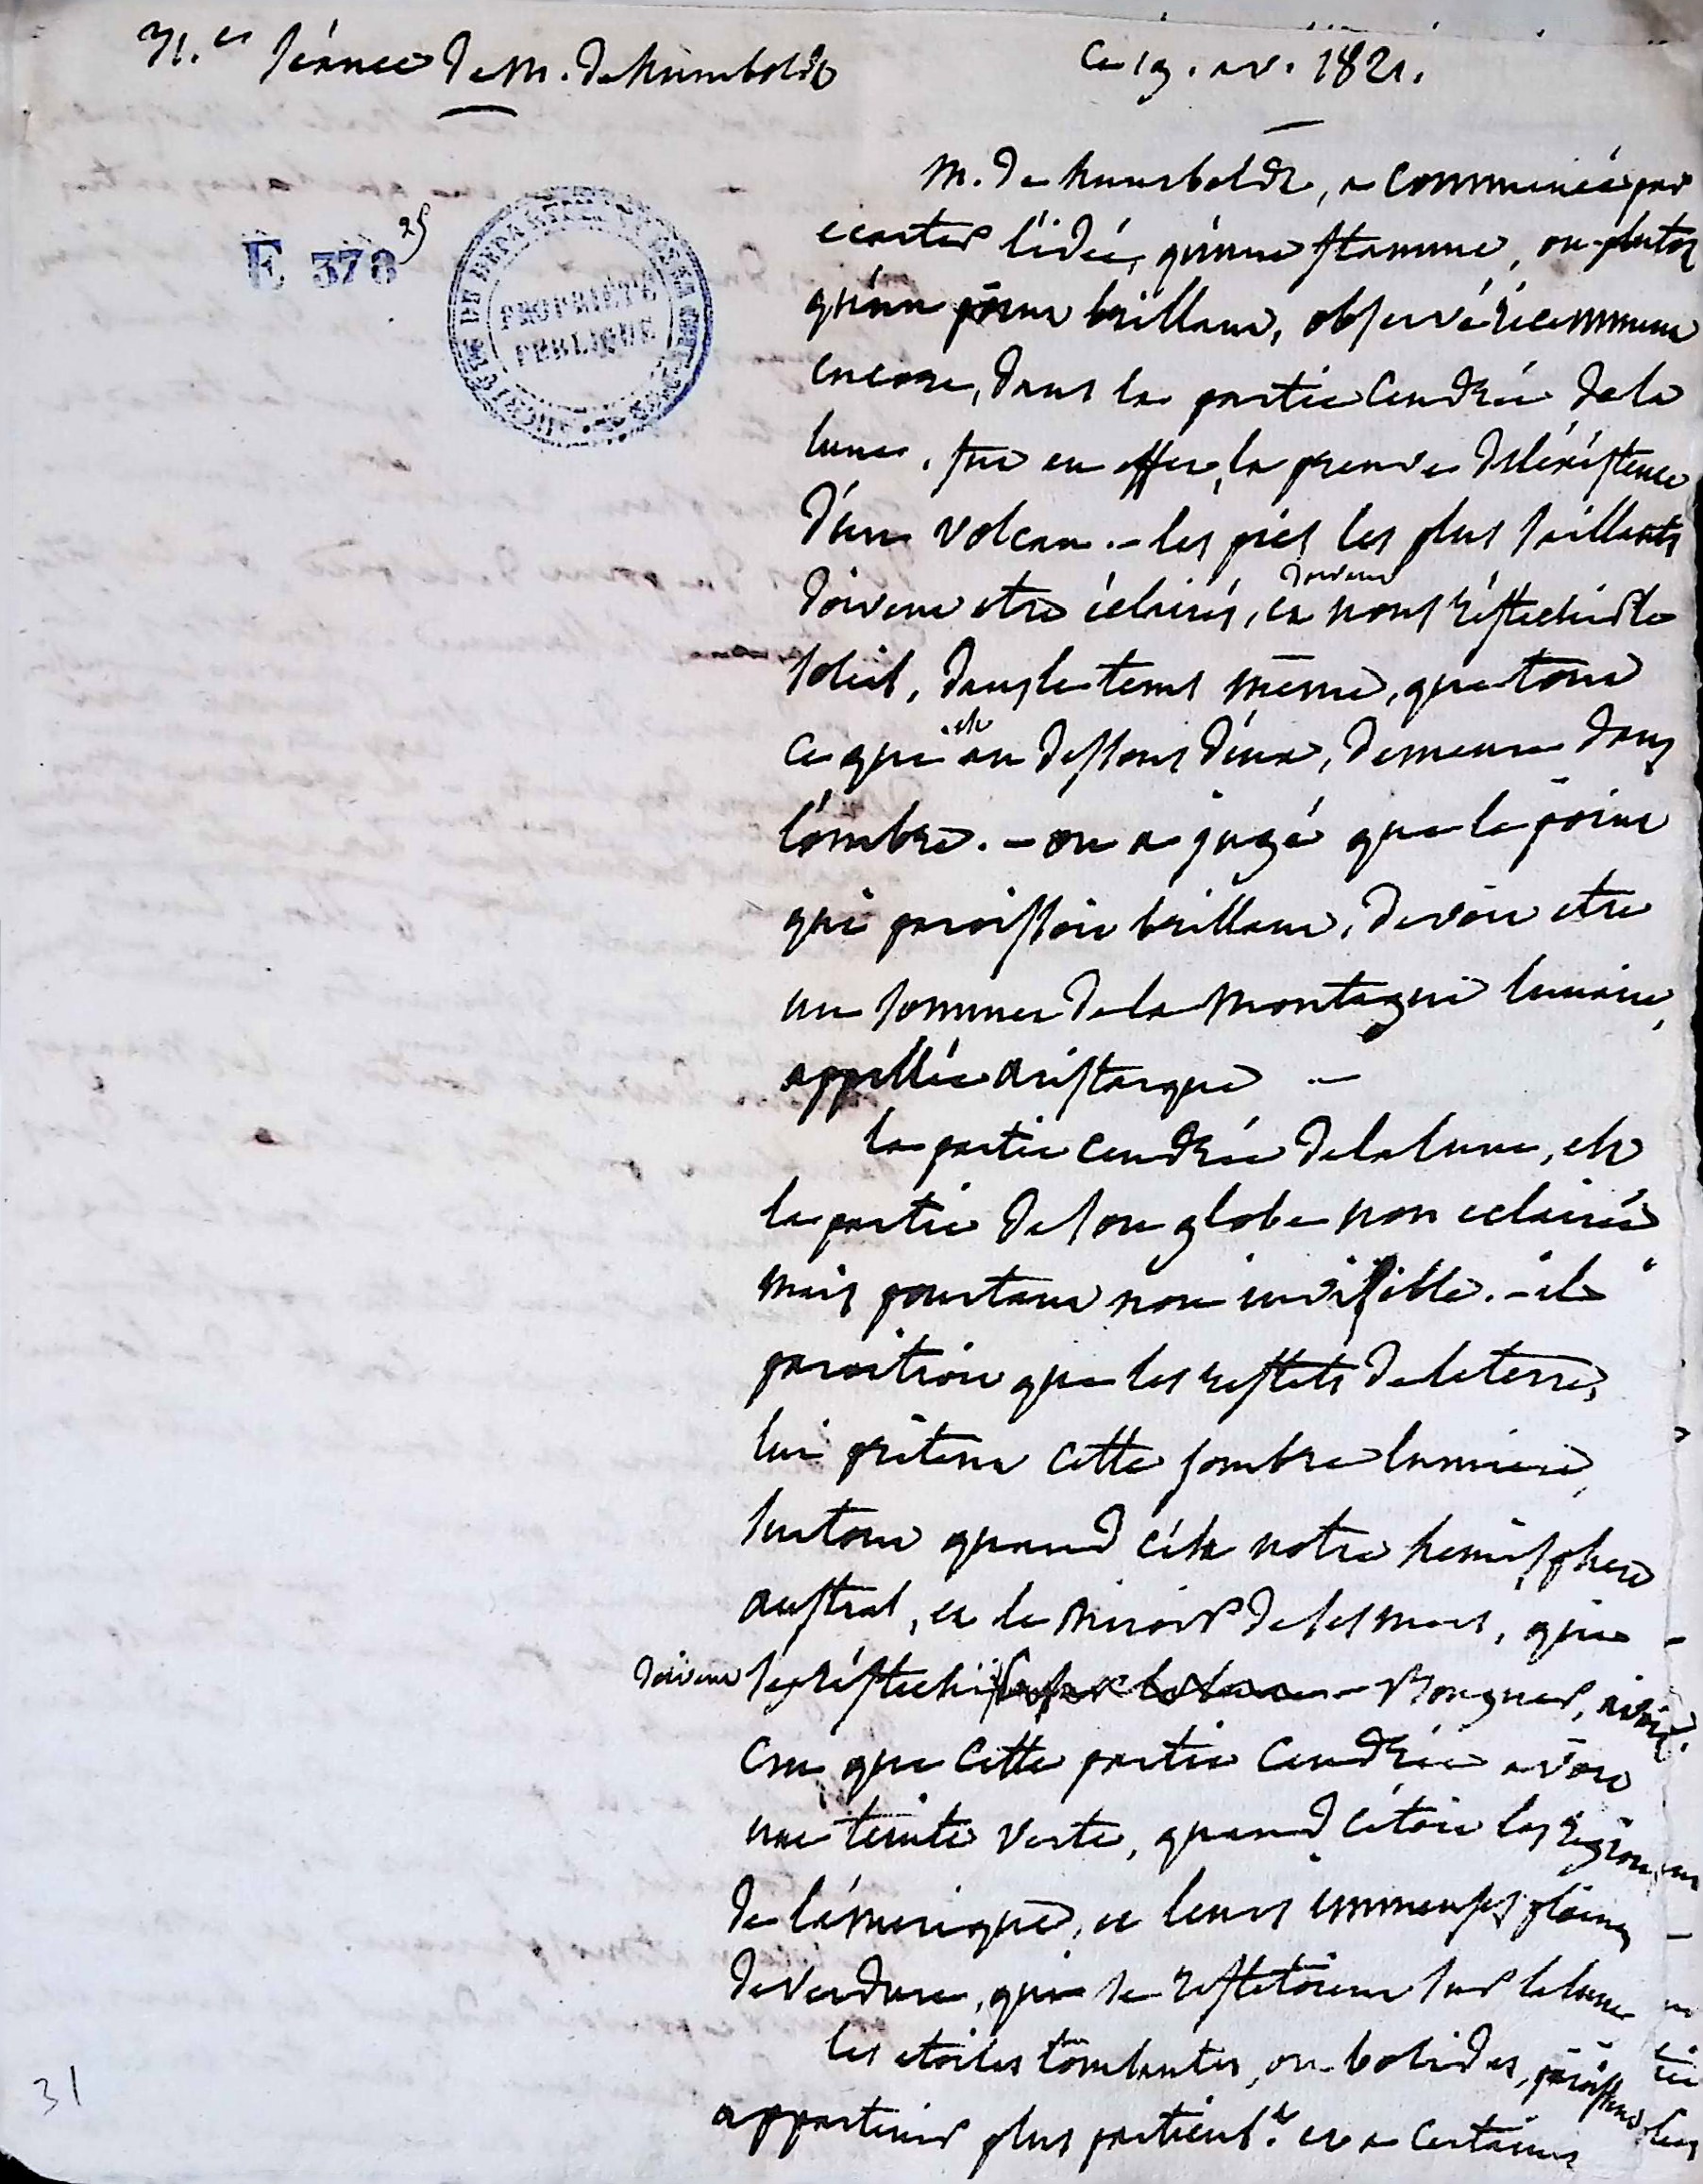 31.e Séance de M. de humboldt
ce 19. av. 1821.
E 378 25
PROPRIÉTÉ
PUBLIQUE
M. de humboldt, a commencé par
ecarter l'idée, qu'une flamme, ou plutot
qu'un point brillant, observé récemment
encore, dans la partie cendrée de la
lune, fut en effet, la preuve de l'éxistence
d'un volcan. - les pics les plus saillants
doivent etre éclairés, et doivent nous réflechir le
soleil, dans le tems même, que tout
ce qui est au dessous d'eux, demeure dans
l'ombre. - on a jugé que le point
qui paroissoit brillant, devoit etre
un sommet de la montagne lunaire,
appellée aristarque -
la partie cendrée de la lune, est
la partie de son globe non eclairée
mais pourtant non invisible. - il
paroitroit que les reflets de la terre,
lui prêtent cette sombre lumiere,
surtout quand c'est notre hemisphere
austral, et le miroir de ses mers, qui
doivent s'y réflechir Bouguer, avoit
cru que cette partie cendrée avoit
une teinte verte, quand c'étoit les regions
de l'amerique, et leurs immenses plaines
de verdure, qui se reflétoient sur la lune
les etoiles tombantes, ou bolides, paroissent
appartenir plus particult. et a certains
31